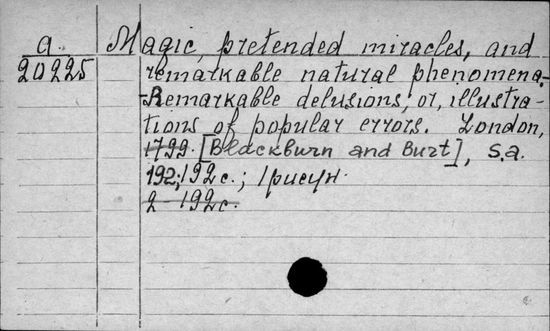 a. Magic, pretended miracles, and
20225 remarkable natural phenomena.
-Remarkable delusions; or, illustra-
tions of popular errors. London,
1799. [Blackburn and Burt], s.a.
192; 192 с.; 1 рисун.
2 - 192 с.